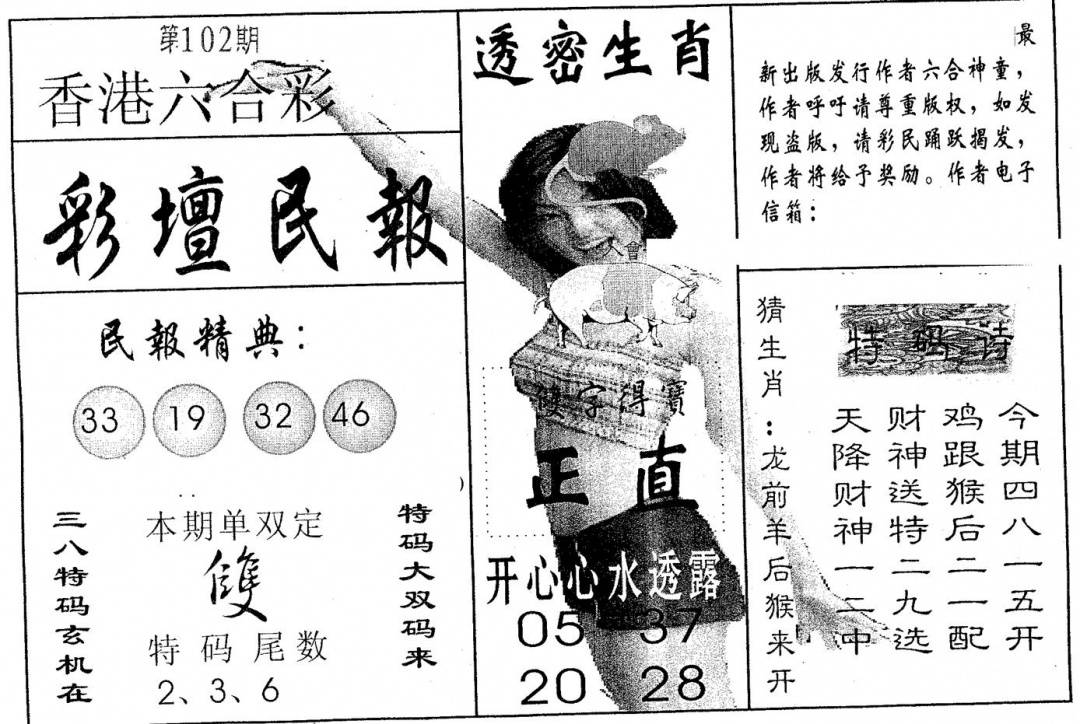 第102期
香港六合彩
彩壇民報
民報精典：
33 19 32 46
三八特码玄机在
本期单双定
雙
特码尾数
2、3、6
特码大双码来
透密生肖
雙字得寶
正直
开心心水透露
05 37
20 28
最
新出版发行作者六合神童，
作者呼吁请尊重版权，如发
现盗版，请彩民踊跃揭发，
作者将给予奖励。作者电子
信箱：
猜生肖：龙前羊后猴来开
特码诗
今期四八一五开
鸡跟猴后二一配
财神送特二九选
天降财神一二中